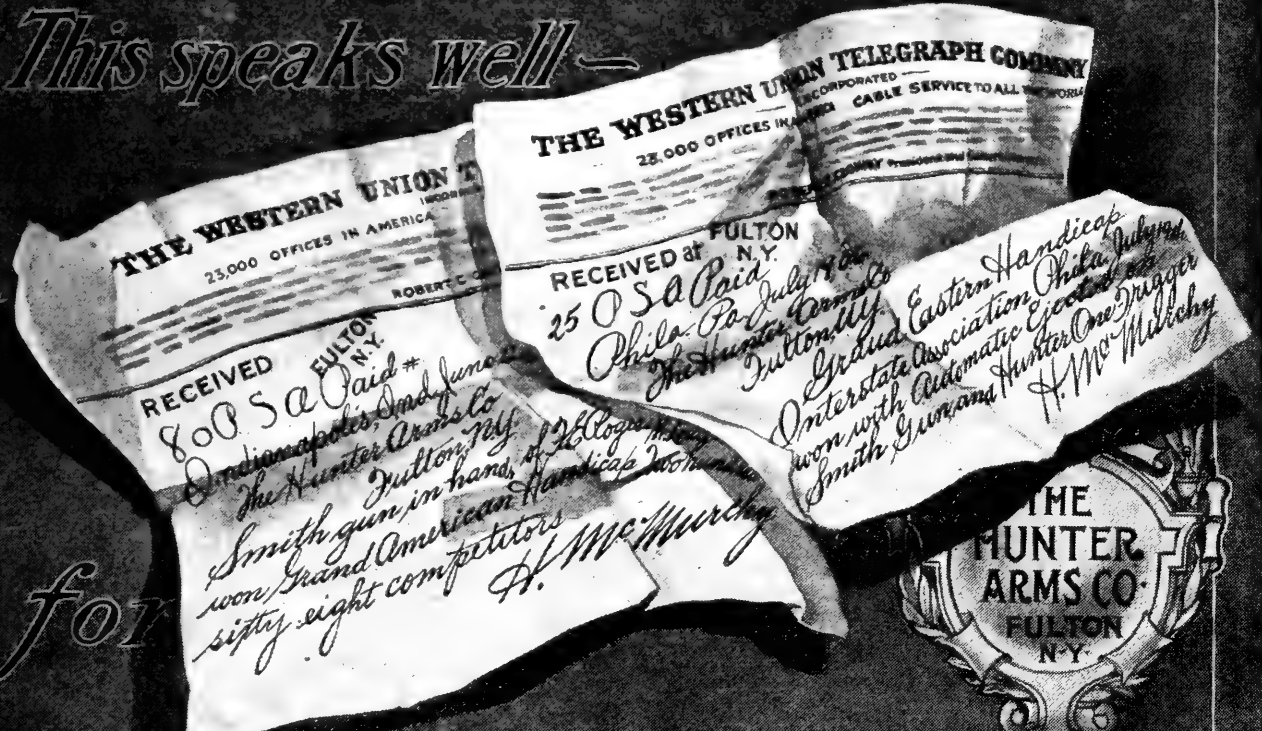 This speaks well—
THE WESTERN UNION T
INCORPOR
23,000 OFFICES IN AMERICA
ROBERT C
RECEIVED
FULTON
N.Y.
80 P S A Paid #
Indianapolis, Ind, June
The Hunter Arms Co
Fulton, NY.
Smith gun in hands of F E Rogers
won Grand American Handicap Two hundred
sixty-eight competitors
H. McMurchy
THE WESTERN UNION TELEGRAPH COMPANY
INCORPORATED
23,000 OFFICES IN AMERICA CABLE SERVICE TO ALL THE WORLD
ROBERT C. CLOWRY President and
RECEIVED at
FULTON
N.Y.
25 P S A Paid
Phila. Pa. July
The Hunter Arms Co
Fulton, NY.
Grand Eastern Handicap
Interstate Association Phila. July
won with Automatic Ejector
Smith Gun, and Hunter One Trigger
H. McMurchy
for
THE
HUNTER
ARMS CO.
FULTON
N.Y.